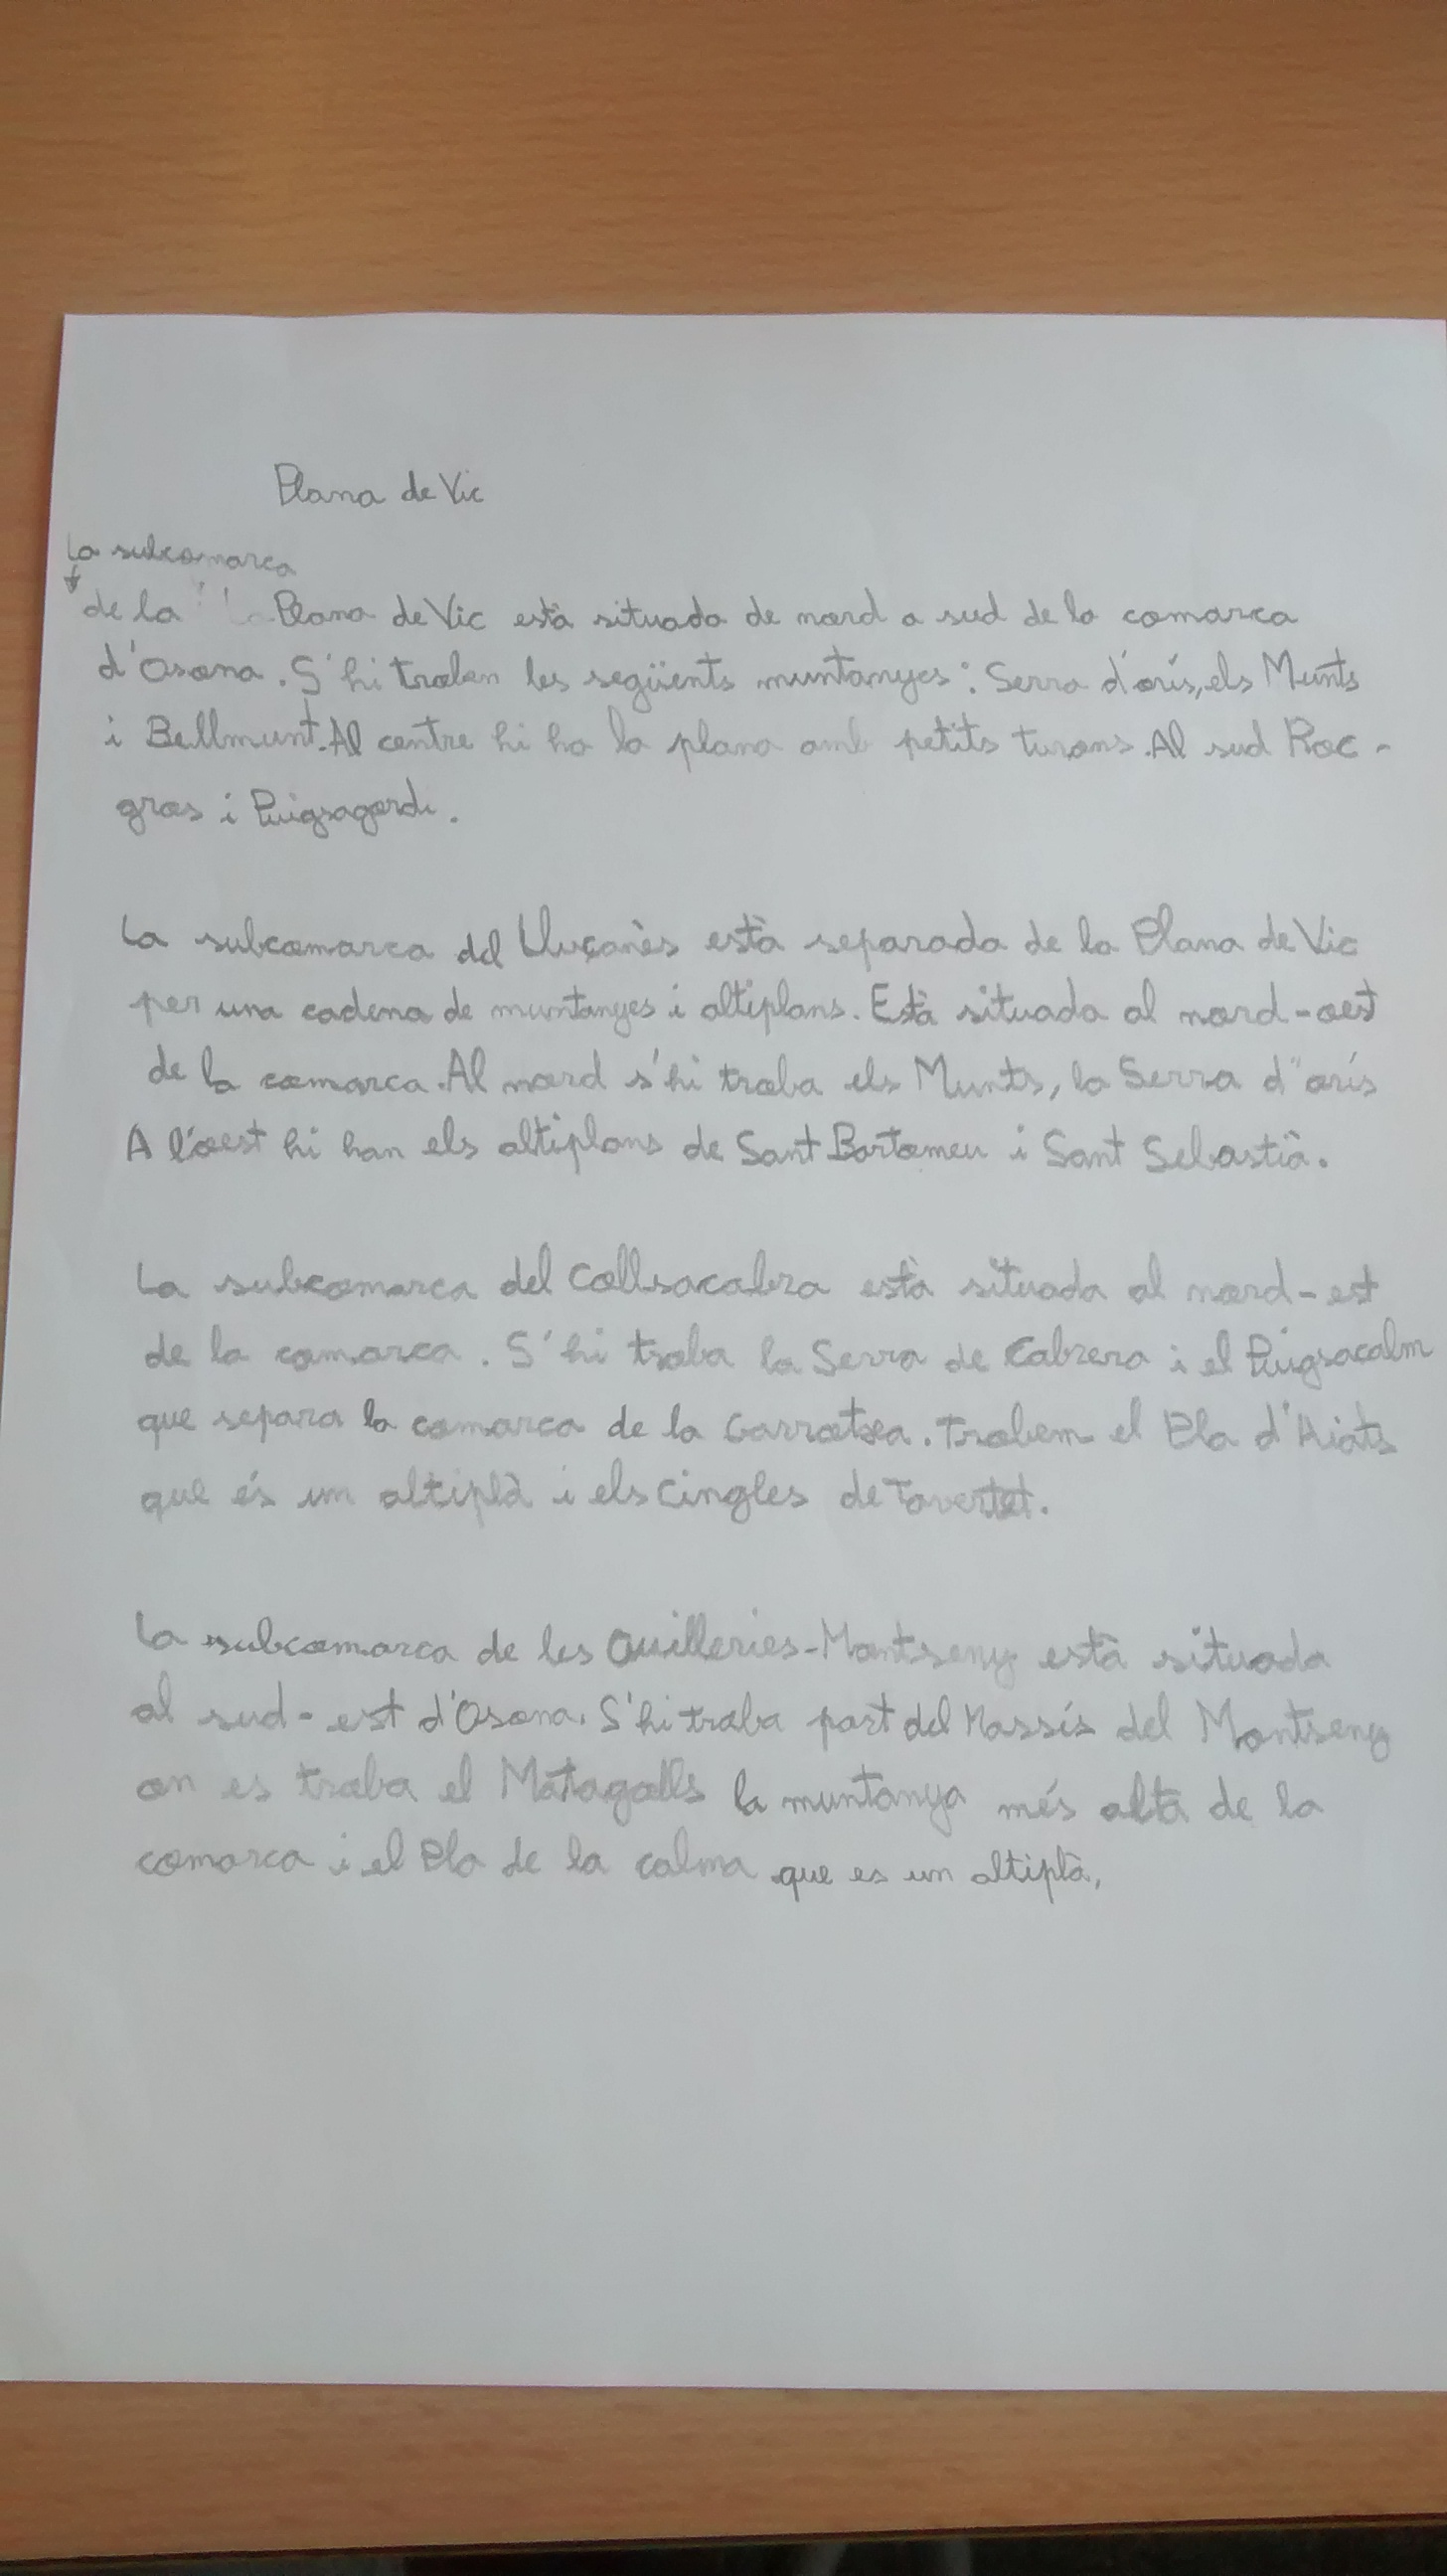 Plana de Vic
La subcomarca
de la Plana de Vic està situada de nord a sud de la comarca
d'Osona. S'hi troben les següents muntanyes: Serra d'orís, els Munts
i Bellmunt. Al centre hi ha la plana amb petits turons. Al sud Roc-
gros i Puigsagordi.
La subcomarca del Lluçanès està separada de la Plana de Vic
per una cadena de muntanyes i altiplans. Està situada al nord-oest
de la comarca. Al nord s'hi troba els Munts, la Serra d'orís
A l'oest hi han els altiplans de Sant Bartomeu i Sant Sebastià.
La subcomarca del Collsacabra està situada al nord-est
de la comarca. S'hi troba la Serra de Cabrera i el Puigsacalm
que separa la comarca de la Garrotxa. Trobem el Pla d'Aiats
que és un altiplà i els Cingles de Tavertet.
La subcomarca de les Guilleries-Montseny està situada
al sud-est d'Osona. S'hi troba part del Massís del Montseny
on es troba el Matagalls la muntanya més alta de la
comarca i el Pla de la calma que es un altiplà,